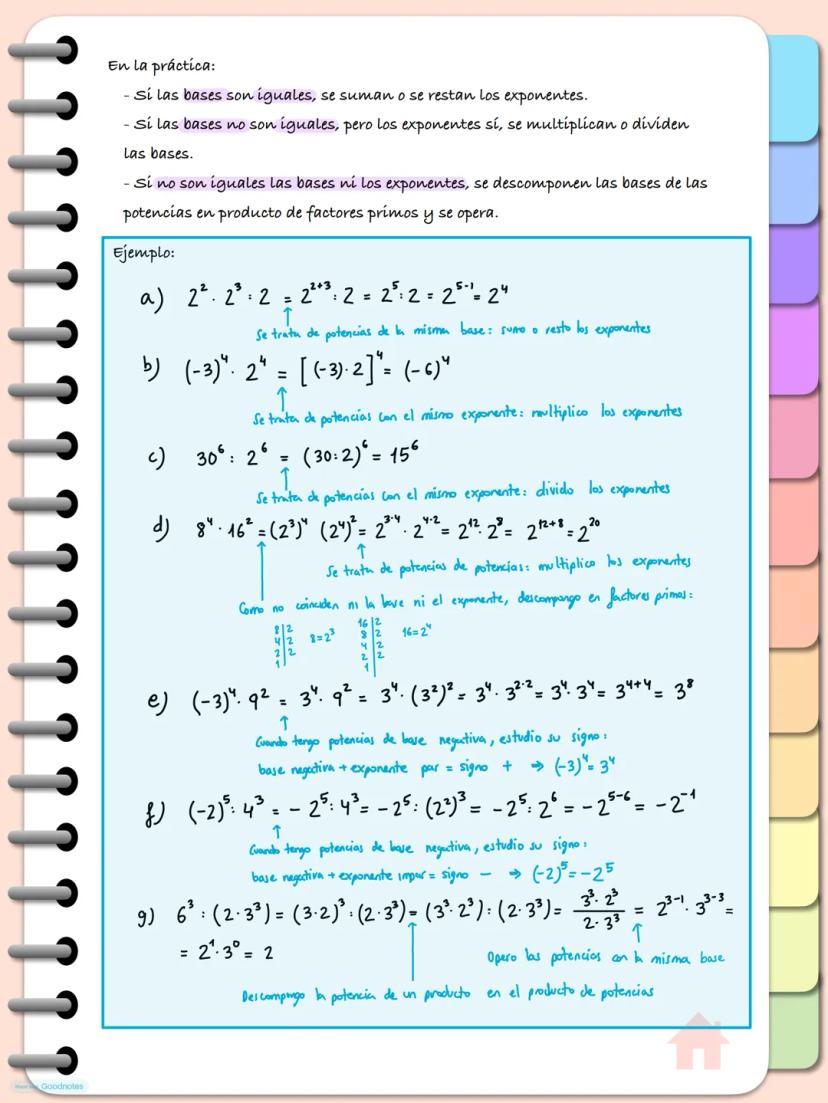 En la práctica:
- Si las bases son iguales, se suman o se restan los exponentes.
- Si las bases no son iguales, pero los exponentes sí, se multiplican o dividen
las bases.
- Si no son iguales las bases ni los exponentes, se descomponen las bases de las
potencias en producto de factores primos y se opera.
Ejemplo:
a) 2² · 2³ : 2 = 2²⁺³ : 2 = 2⁵ : 2 = 2⁵⁻¹ = 2⁴
Se trata de potencias de la misma base: sumo o resto los exponentes
b) (-3)⁴ · 2⁴ = [(-3) · 2]⁴ = (-6)⁴
Se trata de potencias con el mismo exponente: multiplico los exponentes
c) 30⁶ : 2⁶ = (30:2)⁶ = 15⁶
Se trata de potencias con el mismo exponente: divido los exponentes
d) 8⁴ · 16² = (2³)⁴ (2⁴)² = 2³·⁴ · 2⁴·² = 2¹² · 2⁸ = 2¹²⁺⁸ = 2²⁰
Se trata de potencias de potencias: multiplico los exponentes
Como no coinciden ni la base ni el exponente, descompongo en factores primos:
8 | 2
4 | 2
2 | 2
1 |
8 = 2³
16 | 2
8 | 2
4 | 2
2 | 2
1 |
16 = 2⁴
e) (-3)⁴ · 9² = 3⁴ · 9² = 3⁴ · (3²)² = 3⁴ · 3²·² = 3⁴ · 3⁴ = 3⁴⁺⁴ = 3⁸
Cuando tengo potencias de base negativa, estudio su signo:
base negativa + exponente par = signo + ⇒ (-3)⁴ = 3⁴
f) (-2)⁵ : 4³ = - 2⁵ : 4³ = - 2⁵ : (2²)³ = - 2⁵ : 2⁶ = - 2⁵⁻⁶ = - 2⁻¹
Cuando tengo potencias de base negativa, estudio su signo:
base negativa + exponente impar = signo - ⇒ (-2)⁵ = -2⁵
g) 6³ : (2 · 3³) = (3 · 2)³ : (2 · 3³) = (3³ · 2³) : (2 · 3³) = 3³ · 2³ / 2 · 3³ = 2³⁻¹ · 3³⁻³ =
= 2¹ · 3⁰ = 2
Opero las potencias con la misma base
Descompongo la potencia de un producto en el producto de potencias
Goodnotes